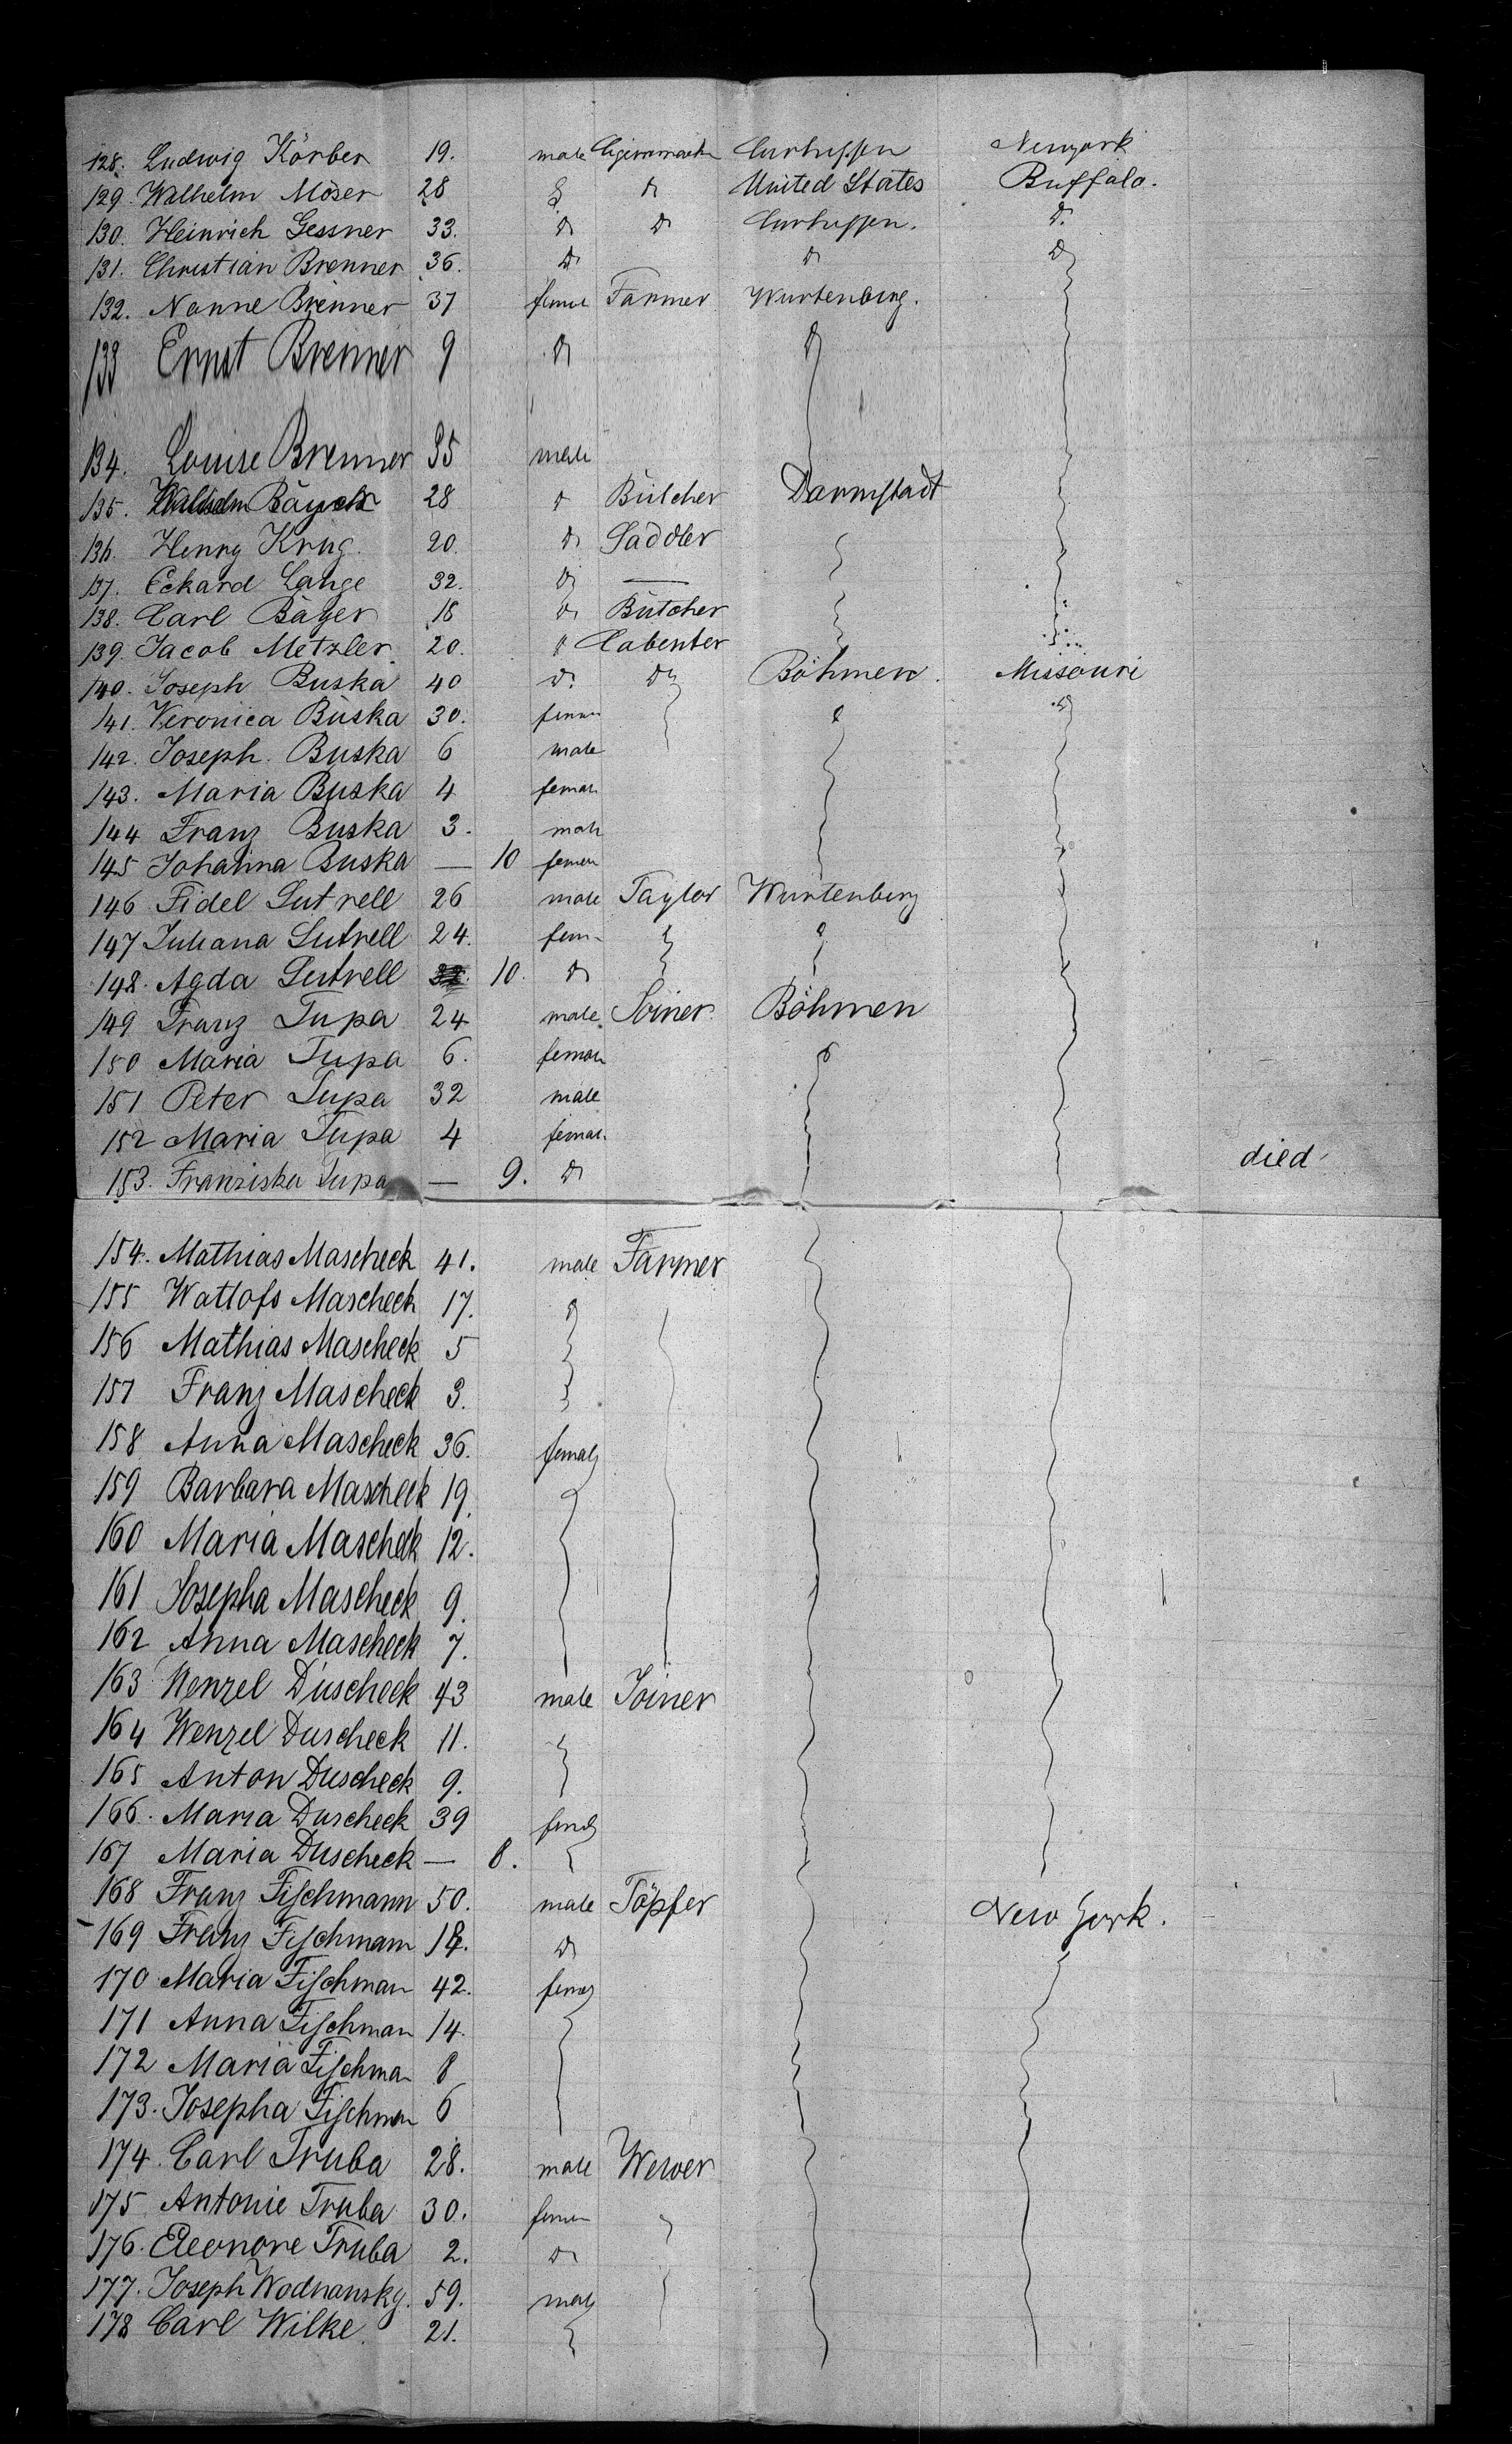 128. Ludwig Körber 19. male Curhessen Newyork
129. Wilhelm Möser 28 d United States Buffalo.
130. Heinrich Gessner 33. d d Curhessen. d.
131. Christian Brenner 36. d d d
132. Nanne Brenner 37 female Farmer Wurtenberg.
133 Ernst Brenner 9 d d
134. Louise Brenner 35 male
135. 28 d Butcher Darmstadt
136. Henry Krug. 20. d Saddler
137. Eckard Lange 32. d —
138. Carl Bäger 18 d Butcher
139. Jacob Metzler. 20. d Cabenter
140. Joseph Buska 40 d. d Böhmen. Missouri
141. Veronica Buska 30. d d
142. Joseph. Buska 6 male
143. Maria Buska 4 female
144 Franz Buska 3. male
145 Johanna Buska — 10 female
146 Fidel Sutrell 26 male Taylor Wurtenberg
147 Juliana Sutrell 24. fem d
148. Agda Sutrell 10. d
149 Franz Tupa 24 male Joiner Böhmen
150 Maria Tupa 6. female d
151 Peter Tupa 32 male
152 Maria Tupa 4 female
153. Franziska Tupa — 9. d died
154. Mathias Mascheck 41. male Farmer
155 Mascheck 17. d
156 Mathias Mascheck 5
157 Franz Mascheck 3.
158 Anna Mascheck 36. female
159 Barbara Mascheck 19.
160 Maria Mascheck 12.
161 Josepha Mascheck 9.
162 Anna Mascheck 7.
163 Wenzel Duscheck 43 male Joiner
164 Wenzel Duscheck 11.
165 Anton Duscheck 9.
166. Maria Duscheck 39
167 Maria Duscheck — 8.
168 Franz Fischmann 50. male Töpfer New York.
169 Franz Fischmann d
170 Maria Fischman 42.
171 Anna Fischman 14.
172 Maria Fischman 8
173. Josepha Fischman 6
174. Carl Truba 28. male Wewer
175 Antonie Truba 30.
176. Eleonore Truba 2. d
177. Joseph Wodnansky. 59. male
178 Carl Wilke. 21.